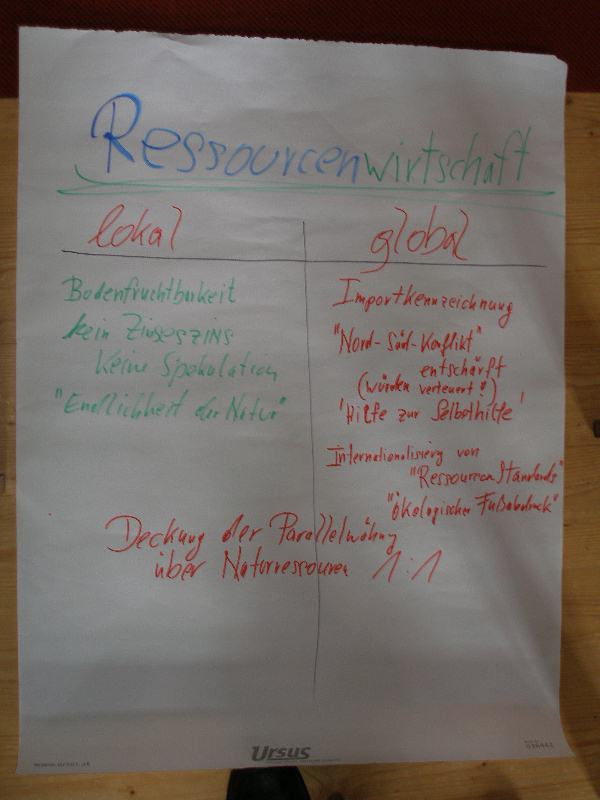 Ressourcenwirtschaft
lokal
global
Bodenfruchtbarkeit
kein Zinseszins
Keine Spekulation
"Endlichkeit der Natur"
Importkennzeichnung
"Nord-Süd-Konflikt"
entschärft
(würden verteuert!)
'Hilfe zur Selbsthilfe'
Internationalisierg von
"Ressourcen Standards"
"ökologischer Fußabdruck"
Deckung der Parallelwähng
über Naturressourcen 1:1
Ursus
www.ursus.at